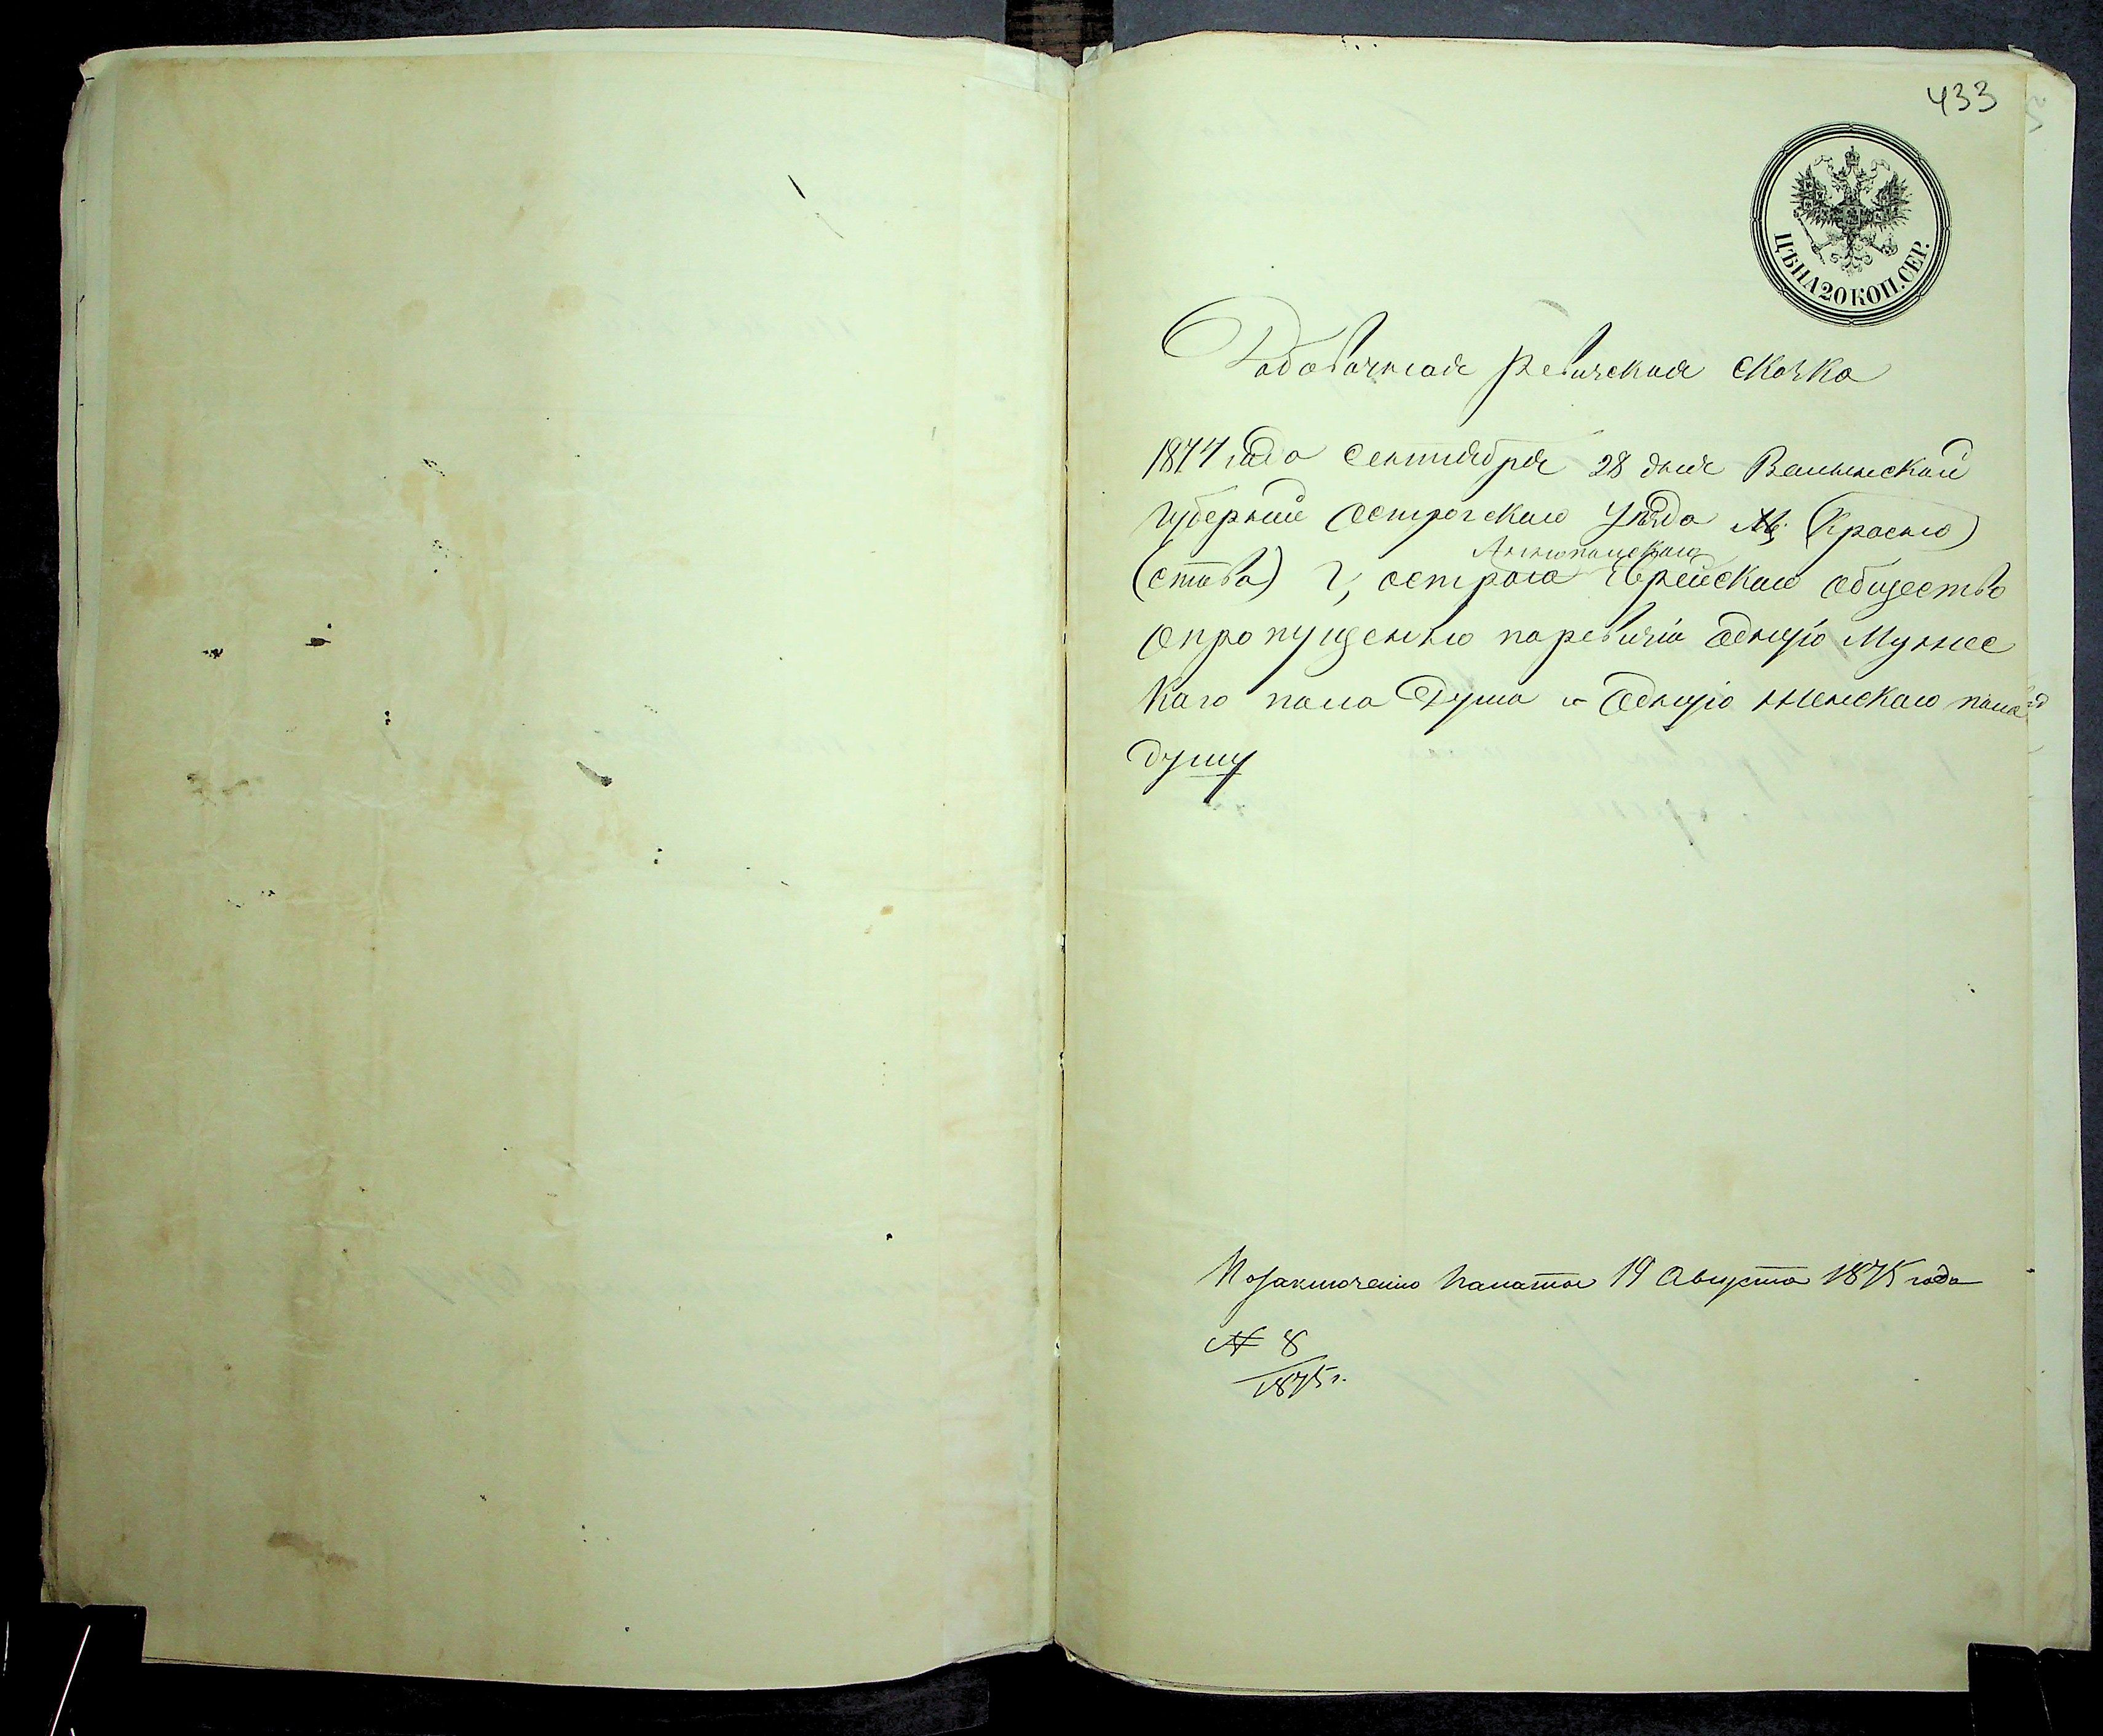 433
ЦѢНА 20 КОП. СЕР.
Добавочная Ревизская скозка
1874 года Сентября 28 дня Волынской
Губернии Острогскаго Уѣзда М. (Красно)
Аннопольскаго
(става) г, острога Еврейскаго общество
О пропущенно поревизіи Одную Мужес
Каго пола Душа и Одную женскаго пола
душу
По заключению Палаты 19 Августа 1875 года
№ 8
1875 г.